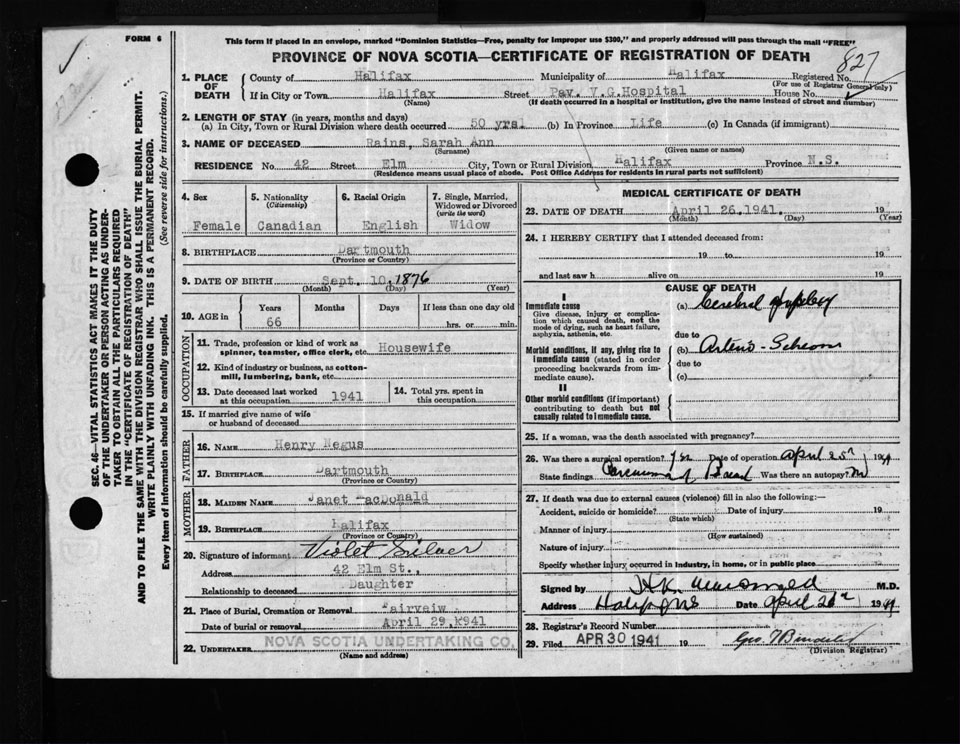 FORM 6
This form if placed in an envelope, marked "Dominion Statistics—Free, penalty for improper use $300," and properly addressed will pass through the mail "FREE"
PROVINCE OF NOVA SCOTIA—CERTIFICATE OF REGISTRATION OF DEATH
827
SEC. 46—VITAL STATISTICS ACT MAKES IT THE DUTY
OF THE UNDERTAKER OR PERSON ACTING AS UNDER-
TAKER TO OBTAIN ALL THE PARTICULARS REQUIRED
IN THE "CERTIFICATE OF REGISTRATION OF DEATH"
AND TO FILE THE SAME WITH THE DIVISION REGISTRAR WHO SHALL ISSUE THE BURIAL PERMIT.
WRITE PLAINLY WITH UNFADING INK. THIS IS A PERMANENT RECORD.
Every item of Information should be carefully supplied. (See reverse side for instructions.)
1. PLACE OF DEATH
County of Halifax Municipality of Halifax Registered No.
(For use of Registrar General only)
If in City or Town Halifax Street Pav. V.G.Hospital House No.
(Name) (If death occurred in a hospital or institution, give the name instead of street and number)
2. LENGTH OF STAY (in years, months and days)
(a) In City, Town or Rural Division where death occurred 50 yrsl (b) In Province Life (c) In Canada (if immigrant)
3. NAME OF DECEASED Rains, Sarah Ann
(Surname) (Given name or names)
RESIDENCE No. 42 Street Elm City, Town or Rural Division Halifax Province N.S.
(Residence means usual place of abode. Post Office Address for residents in rural parts not sufficient)
4. Sex Female
5. Nationality (Citizenship) Canadian
6. Racial Origin English
7. Single, Married, Widowed or Divorced (write the word) Widow
8. BIRTHPLACE Dartmouth
(Province or Country)
9. DATE OF BIRTH Sept. 10, 1876
(Month) (Day) (Year)
10. AGE in Years 66 Months Days If less than one day old hrs. or min.
OCCUPATION
11. Trade, profession or kind of work as spinner, teamster, office clerk, etc. Housewife
12. Kind of industry or business, as cotton-mill, lumbering, bank, etc.
13. Date deceased last worked at this occupation 1941
14. Total yrs. spent in this occupation
15. If married give name of wife or husband of deceased
FATHER
16. NAME Henry Negus
17. BIRTHPLACE Dartmouth
(Province or Country)
MOTHER
18. MAIDEN NAME Janet MacDonald
19. BIRTHPLACE Halifax
(Province or Country)
20. Signature of informant Violet Silver
Address 42 Elm St.,
Relationship to deceased Daughter
21. Place of Burial, Cremation or Removal Fairveiw
Date of burial or removal April 29, 1941
22. UNDERTAKER NOVA SCOTIA UNDERTAKING CO.
(Name and address)
MEDICAL CERTIFICATE OF DEATH
23. DATE OF DEATH April 26.1941. 19
(Month) (Day) (Year)
24. I HEREBY CERTIFY that I attended deceased from:
19 to 19
and last saw h alive on 19
CAUSE OF DEATH
I
Immediate cause (a) Cerebral
Give disease, injury or complication which caused death, not the mode of dying, such as heart failure, asphyxia, asthenia, etc.
due to
Morbid conditions, if any, giving rise to immediate cause (stated in order proceeding backwards from immediate cause). (b) Arterio-Scleros
due to
(c)
II
Other morbid conditions (if important) contributing to death but not causally related to immediate cause.
25. If a woman, was the death associated with pregnancy?
26. Was there a surgical operation? Yes Date of operation April 25th 1941
State findings Carcinoma of Breast Was there an autopsy? No
27. If death was due to external causes (violence) fill in also the following:—
Accident, suicide or homicide? Date of injury 19
(State which)
Manner of injury
(How sustained)
Nature of injury
Specify whether injury occurred in industry, in home, or in public place
Signed by M.D.
Address Halifax NS Date April 26th 1941
28. Registrar's Record Number
29. Filed APR 30 1941 19
(Division Registrar)